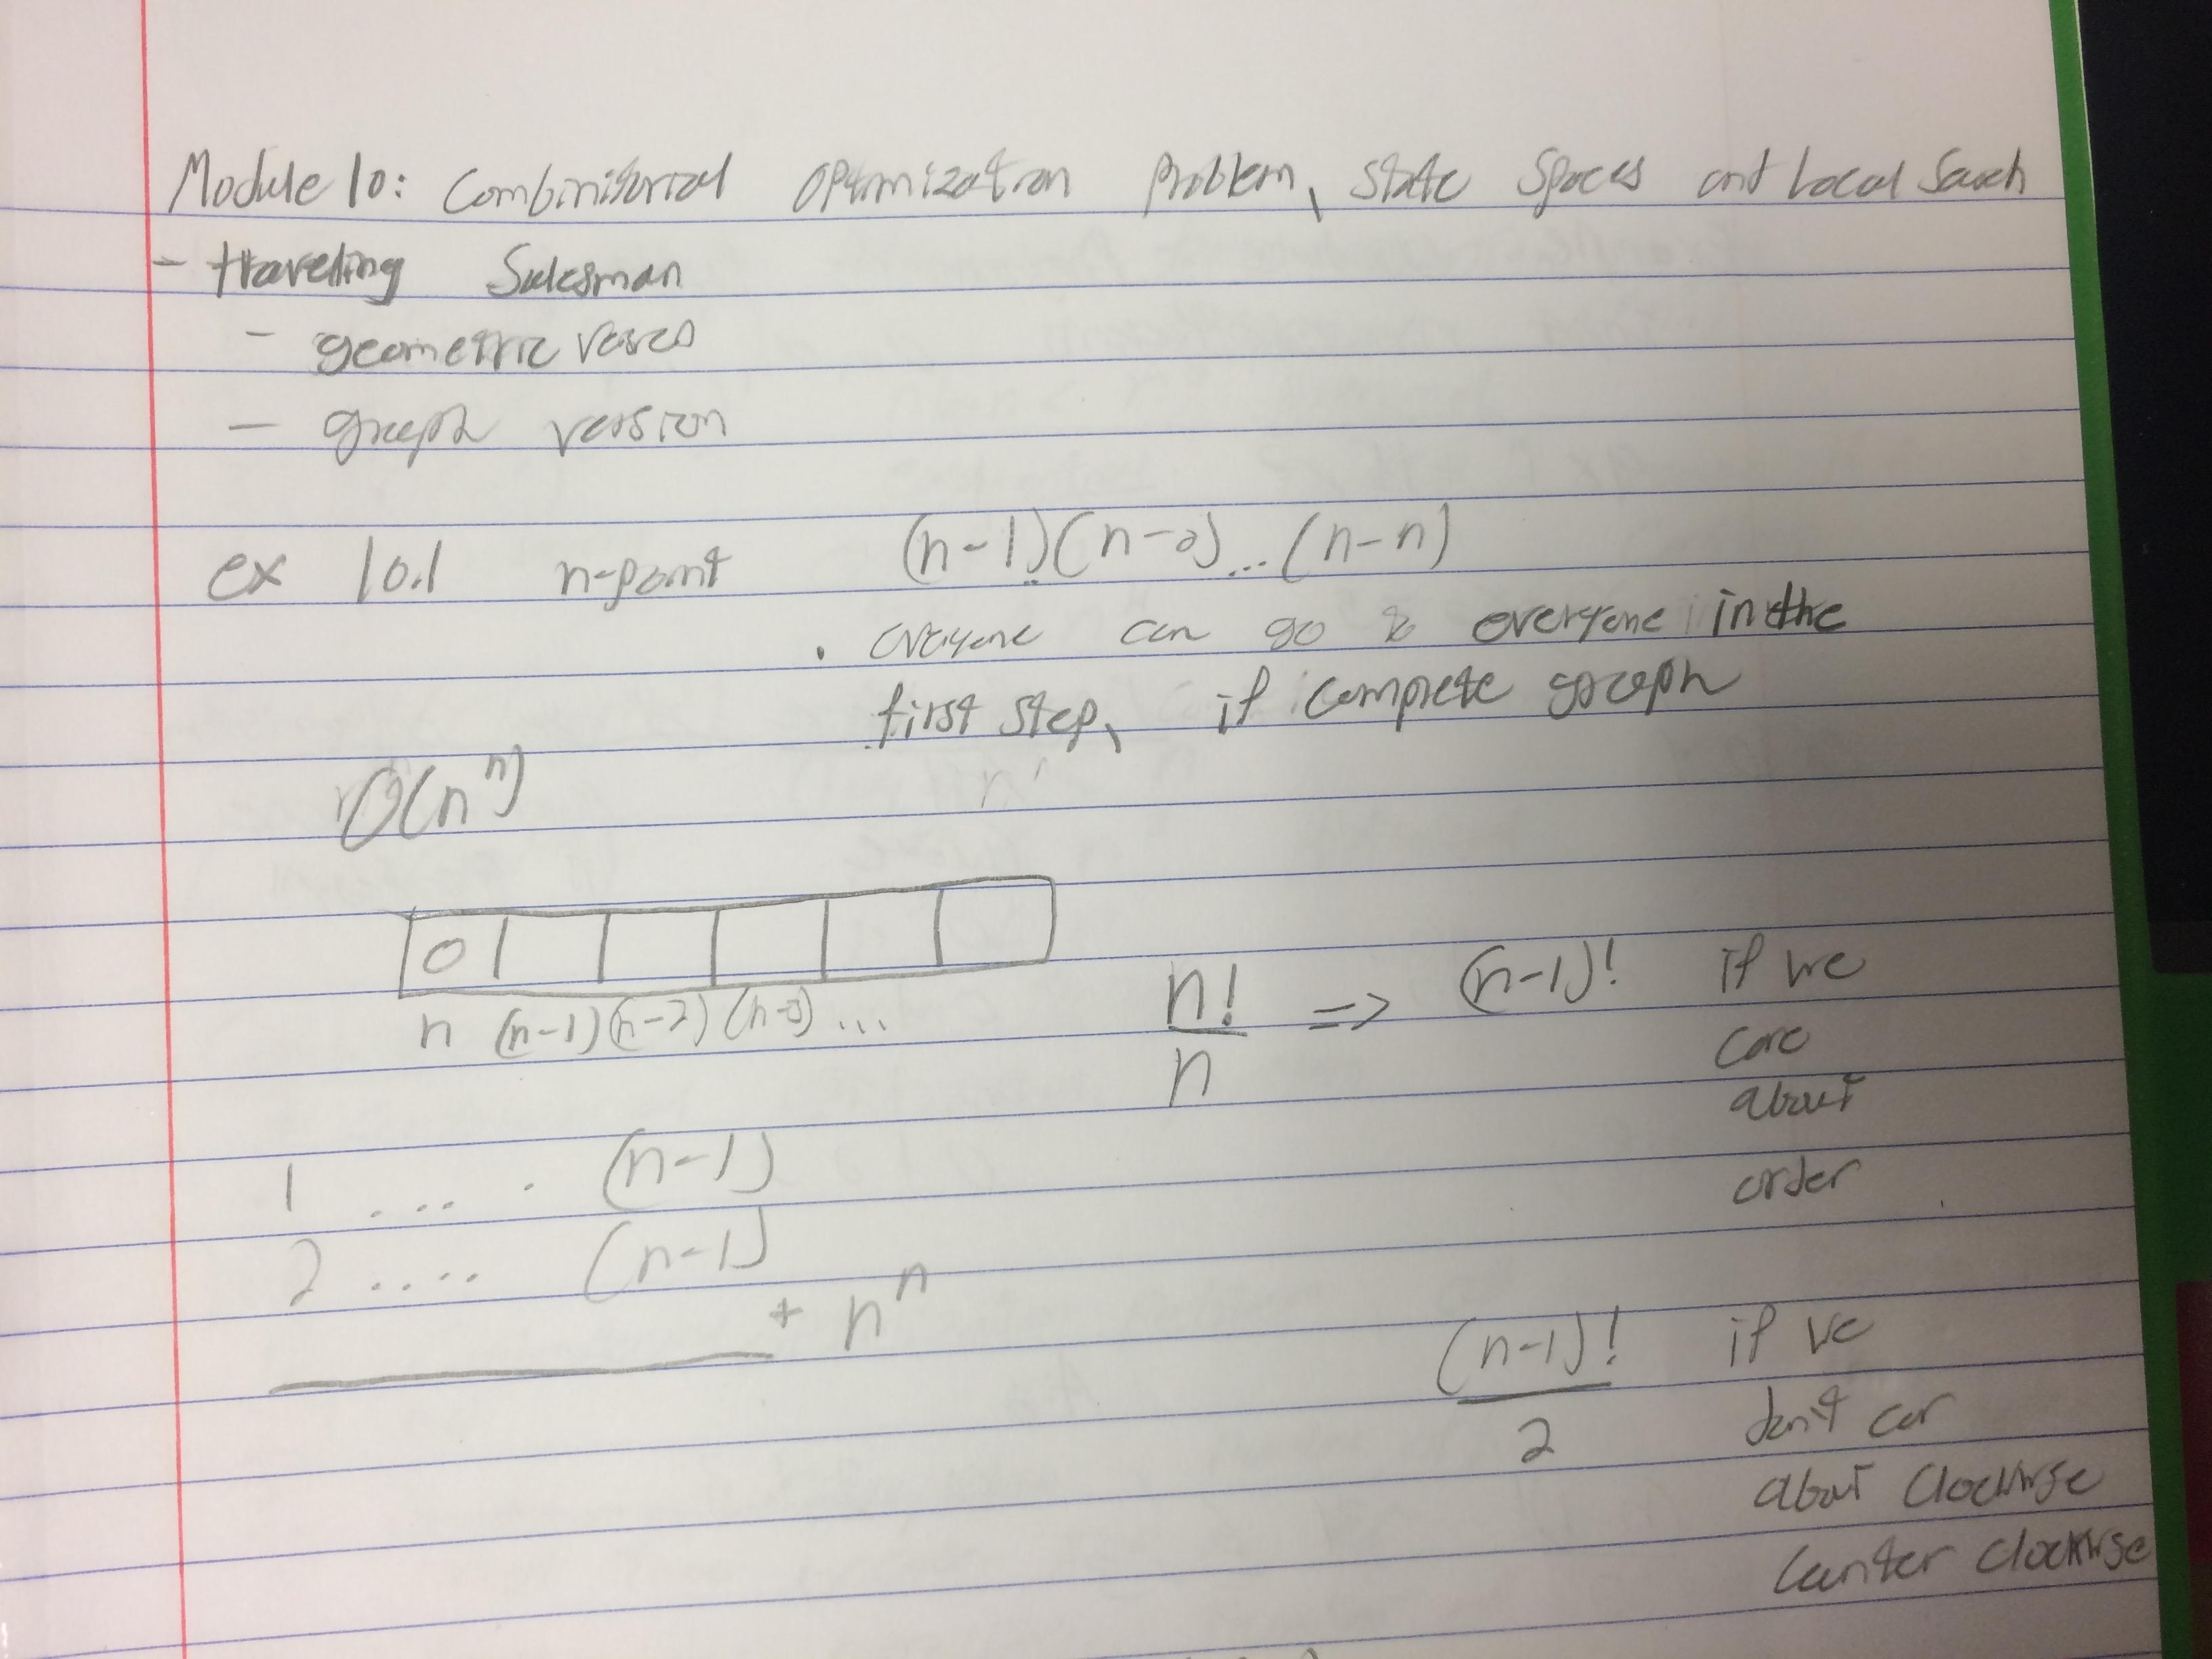 Module 10: Combinitorial Optimization Problem, State Spaces and Local Search
- traveling Salesman
- geometric
- graph version
ex 10.1 n-point (n-1)(n-2)...(n-n)
. everyone can go to everyone in the
first step, if complete graph
O(n^n)
0
n (n-1)(n-2)(n-3)...
n!/n => (n-1)! if we
care
about
order
1 .... (n-1)
2 .... (n-1)
+ n^n
(n-1)!/2 if we
don't car
about clockwise
counter clockwise